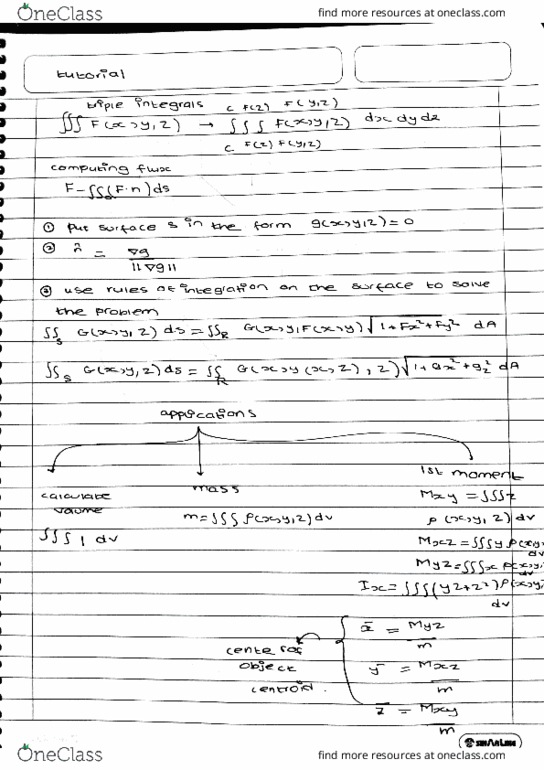 OneClass find more resources at oneclass.com
tutorial
triple integrals c F(z) F(y,z)
∭ F(x,y,z) → ∫ ∫ ∫ F(x,y,z) dx dy dz
c F(z) F(y,z)
computing flux
F-∬(F·n)ds
① Put surface S in the form g(x,y,z)=0
② n̂ = ∇g / ||∇g||
③ use rules of integration on the surface to solve
the problem
∬s G(x,y,z) ds = ∬R G(x,y,F(x,y)) √1+Fx²+Fy² dA
∬s G(x,y,z) ds = ∬R G(x,y(x,z),z) √1+gx²+gz² dA
applications
1st moment
calculate mass Mxy = ∭z
volume m=∭ρ(x,y,z)dv ρ(x,y,z)dv
∭ 1 dv Mxz=∭y ρ(x,y
dv
Myz=∭x ρ(x,y
dv
Ix=∭(y2+z²)ρ(x,y
dv
x̄ = Myz / m
center of
object ȳ = Mxz / m
centroid.
z̄ = Mxy / m
OneClass find more resources at oneclass.com